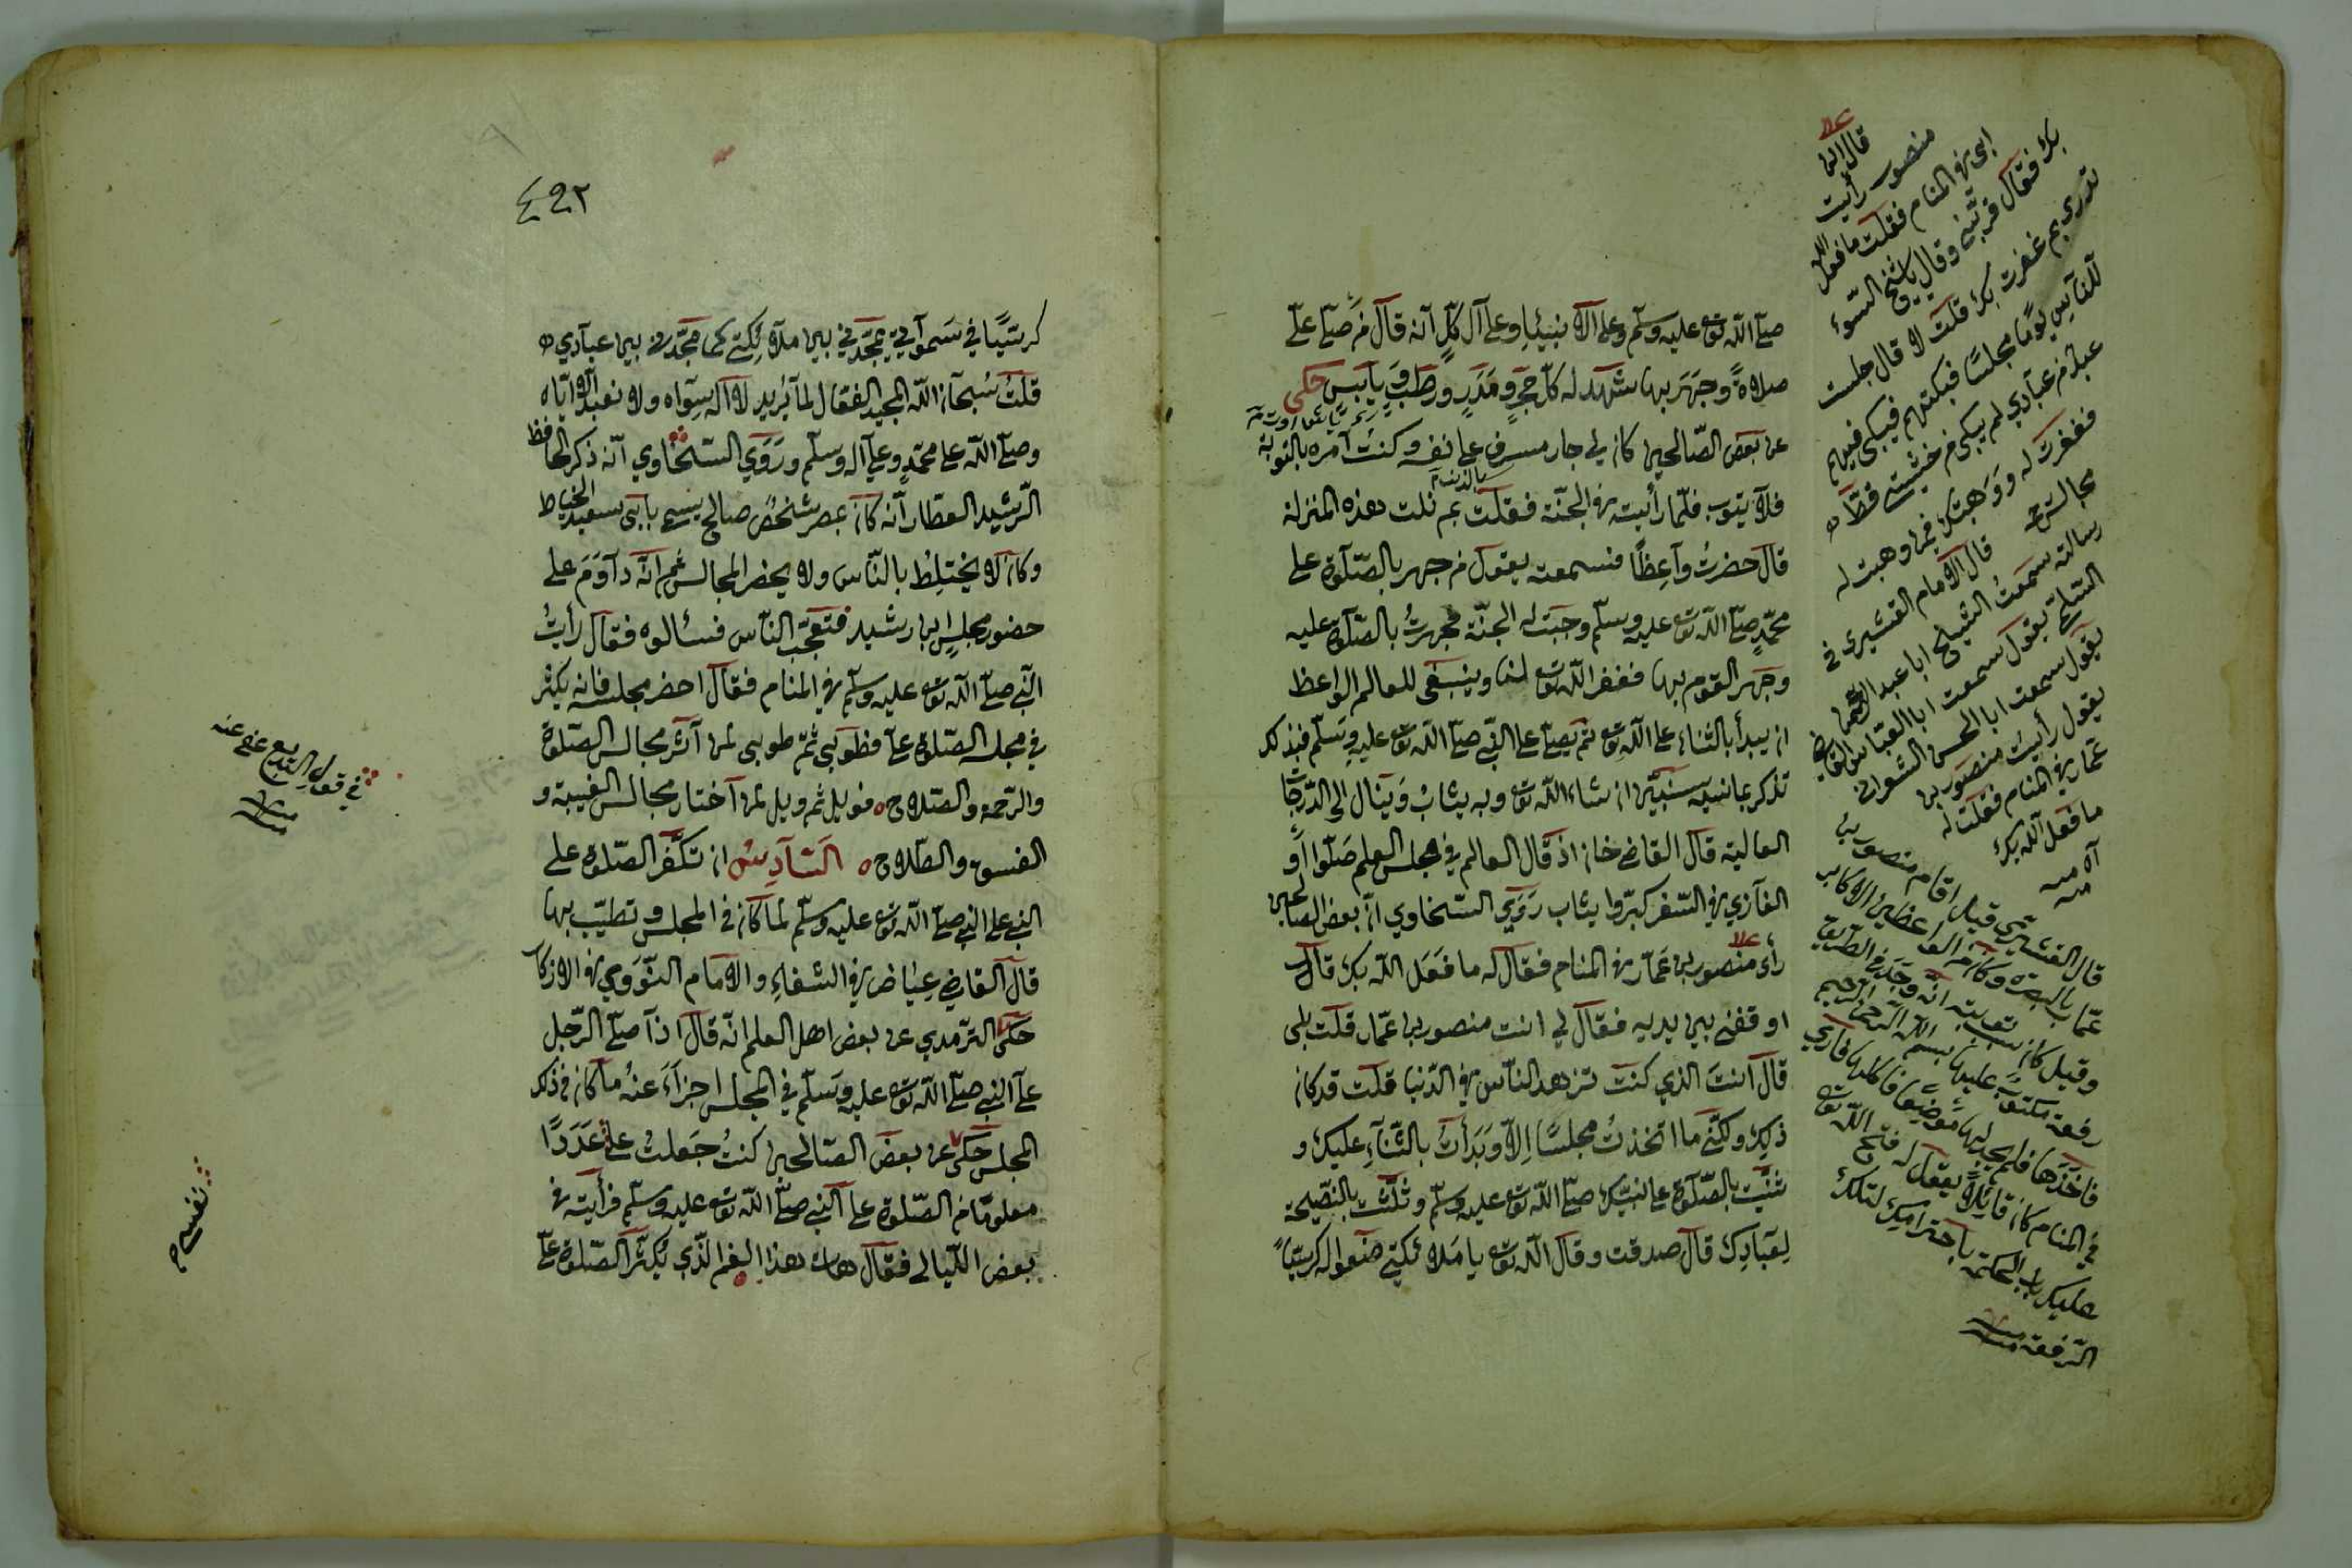 صلى الله تع عليه وسلم وعلى الانبياء وعلى آل كل انه قال من صلى علي
صلاة وجهر بها شهد له كل حجر ومدر ورطب ويابس حكى
عن بعض الصالحين كان لي جار مسرف على نفسه وكنت آمره بالتوبة
فلا يتوب فلما رأيته في الجنة فقلت بم نلت هذه المنزلة
قال حضرت واعظا فسمعته يقول من جهر بالصلوة على
محمد صلى الله تع عليه وسلم وجبت له الجنة فجهرت بالصلوة عليه
وجهر القوم بها فغفر الله تع لنا وينبغي للعالم الواعظ
ان يبدأ بالثناء على الله تع ثم يصلي على النبي صلى الله تع عليه وسلم فبذلك
شاء الله تع وبه يثاب وينال الى الدرجات
العالية قال القاضي خان اذ قال العالم في مجلس العلم صلوا او
الغازي في السفر كبروا يثاب روي السخاوي ان بعض الصالحين
رأى منصور بن عمار في المنام فقال له ما فعل الله بك قال
اوقفني بين يديه فقال لي انت منصور بن عمار قلت بلى
قال انت الذي كنت تزهد الناس في الدنيا قلت قد كان
ذلك ولكني ما اتخذت مجلسا الا وبدأت بالثناء عليك و
ثنيت بالصلوة على نبيك صلى الله تع عليه وسلم وثلثت بالنصيحة
لعبادك قال صدقت وقال الله تع يا ملائكتي ضعوا له كرسيا
قال ابن
منصور رأيت
ابي في المنام فقلت ما فعل الله
بك فقال قربني وقال يا شيخ السوء
تدري بم غفرت لك قلت لا قال جلست
للناس يوما مجلسا فبكيتهم فبكى فيهم
عبد من عبادي لم يبك من خشيتي قط
فغفرت له ووهبتك فيمن وهبت له
قال الامام القشيري في
رسالته سمعت الشيخ ابا عبد الرحمن
السلمي يقول سمعت ابا العباس القاضي
يقول سمعت ابا الحسن الشعراني
يقول رأيت منصور بن
عمار في المنام فقلت له
ما فعل الله بك
اه منه
قال القشيري قيل اقام منصور بن
عمار بالبصرة وكان من الواعظين الاكابر
وقيل كان سبب توبته انه وجد في الطريق
رقعة مكتوب عليها بسم الله الرحمن الرحيم
فاخذها فلم يجد لها موضعا فاكلها فاري
في المنام كان قائلا يقول له فتح الله تع
عليك باب الحكمة باحترامك لتلك
الرقعة منه
٤٩٢
كرسيا في سمواتي يمجدني بين ملائكتي كما مجدني بين عبادي
قلت سبحان الله المجيد الفعال لما يريد لا اله سواه ولا نعبد الا اياه
وصلى الله على محمد وعلى آله وسلم وروي السخاوي انه ذكر الحافظ
الرشيد العطار انه كان بمصر شخص صالح يسمى بابي سعيد الخياط
وكان لا يختلط بالناس ولا يحضر المجالس ثم انه داوم على
حضور مجلس ابن رشيد فتعجب الناس فسألوه فقال رأيت
النبي صلى الله تع عليه وسلم في المنام فقال احضر مجلسه فانه يكثر
في مجلسه الصلوة علي فطوبى ثم طوبى لمن آثر مجالس الصلوة
والرحمة والصلاح فويل ثم ويل لمن اختار مجالس الغيبة و
الفسق والطلاح السادس ان تكفر الصلوة على
النبي على النبي صلى الله تع عليه وسلم لما كان في المجلس وتطيب بها
قال القاضي عياض في الشفاء والامام النووي في الاذكار
حكى الترمذي عن بعض اهل العلم انه قال اذا صلى الرجل
على النبي صلى الله تع عليه وسلم في المجلس اجزاء عنه ما كان في ذلك
المجلس حكى عن بعض الصالحين كنت جعلت علي عددا
معلوما من الصلوة على النبي صلى الله تع عليه وسلم فرأيته في
بعض الليالي فقال هات هذا الفم الذي يكثر الصلوة علي
في قول البديع عفي عنه